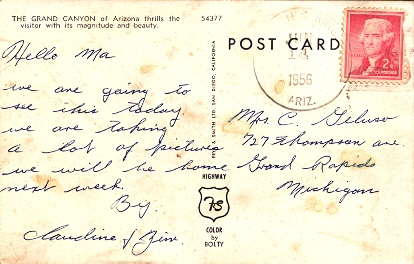 THE GRAND CANYON of Arizona thrills the
visitor with its magnitude and beauty.
54377
Hello Ma
we are going to
see this today.
we are taking
a lot of pictures
we will be home
next week.
By.
Claudine & Jim.
PUB. BY SMITH LTD. SAN DIEGO, CALIFORNIA
HIGHWAY
HS
COLOR
by
BOLTY
POST CARD
JUN
14
1956
ARIZ.
2¢
U.S. POSTAGE
Mrs C. Geluso
727 Thompson ave.
Grand Rapids
Michigan